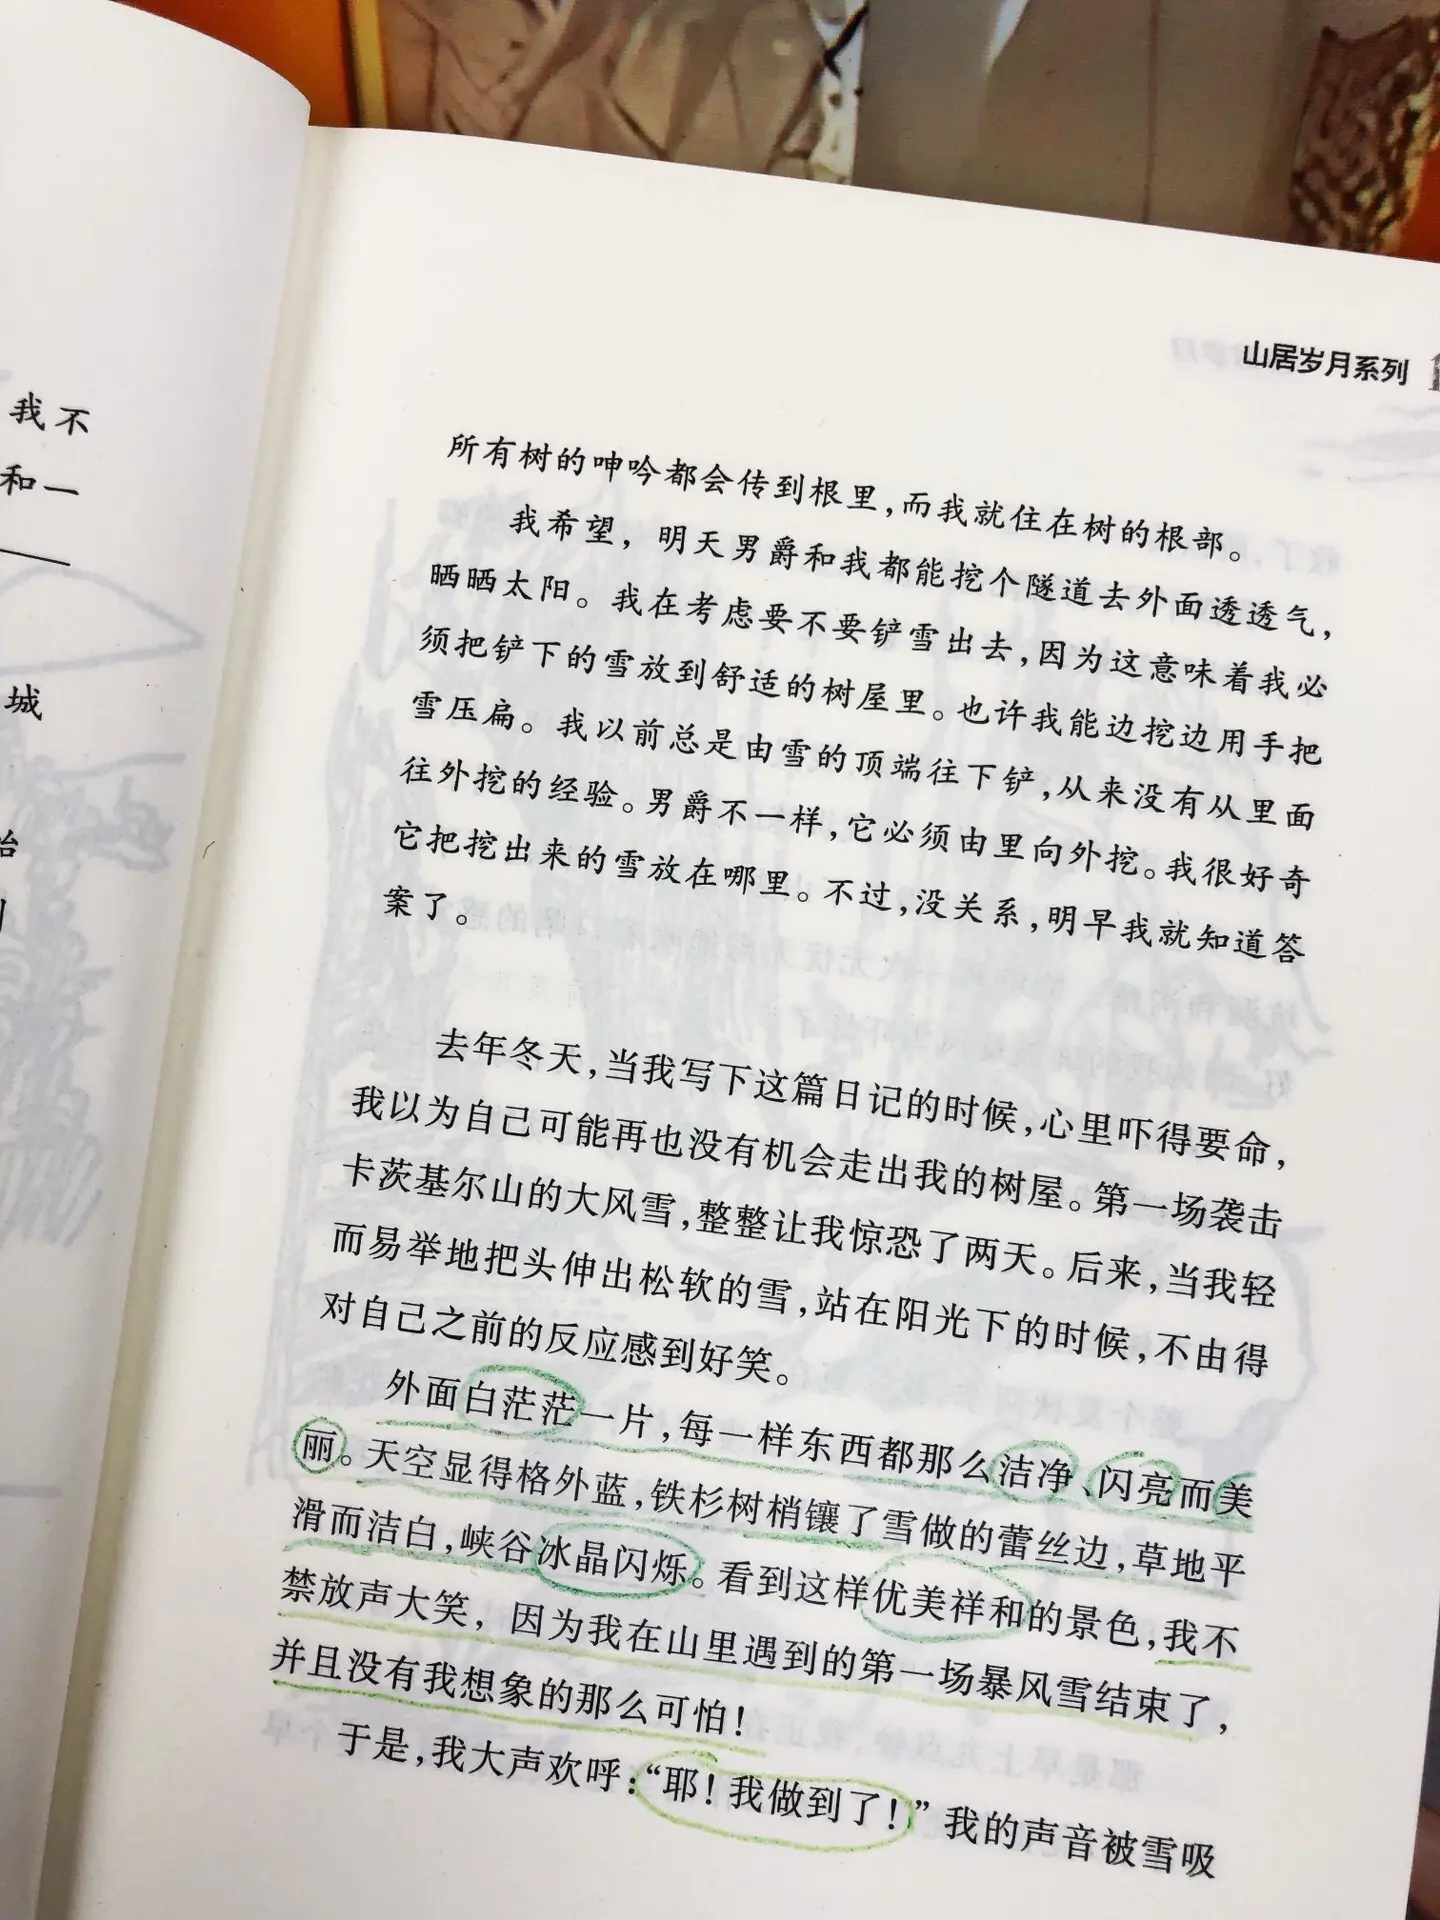 我不
和一
城
山居岁月系列
所有树的呻吟都会传到根里，而我就住在树的根部。
我希望，明天男爵和我都能挖个隧道去外面透透气，
晒晒太阳。我在考虑要不要铲雪出去，因为这意味着我必
须把铲下的雪放到舒适的树屋里。也许我能边挖边用手把
雪压扁。我以前总是由雪的顶端往下铲，从来没有从里面
往外挖的经验。男爵不一样，它必须由里向外挖。我很好奇
它把挖出来的雪放在哪里。不过，没关系，明早我就知道答
案了。
去年冬天，当我写下这篇日记的时候，心里吓得要命，
我以为自己可能再也没有机会走出我的树屋。第一场袭击
卡茨基尔山的大风雪，整整让我惊恐了两天。后来，当我轻
而易举地把头伸出松软的雪，站在阳光下的时候，不由得
对自己之前的反应感到好笑。
外面白茫茫一片，每一样东西都那么洁净、闪亮而美
丽。天空显得格外蓝，铁杉树梢镶了雪做的蕾丝边，草地平
滑而洁白，峡谷冰晶闪烁。看到这样优美祥和的景色，我不
禁放声大笑，因为我在山里遇到的第一场暴风雪结束了，
并且没有我想象的那么可怕！
于是，我大声欢呼：“耶！我做到了！”我的声音被雪吸